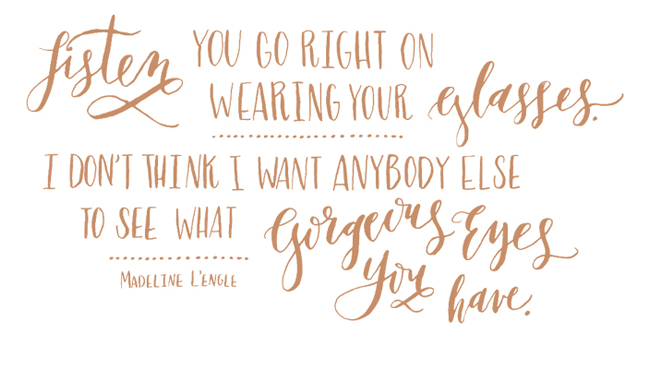 listen YOU GO RIGHT ON
WEARING YOUR glasses.
I DON'T THINK I WANT ANYBODY ELSE
TO SEE WHAT Gorgeous Eyes
you have.
MADELINE L'ENGLE